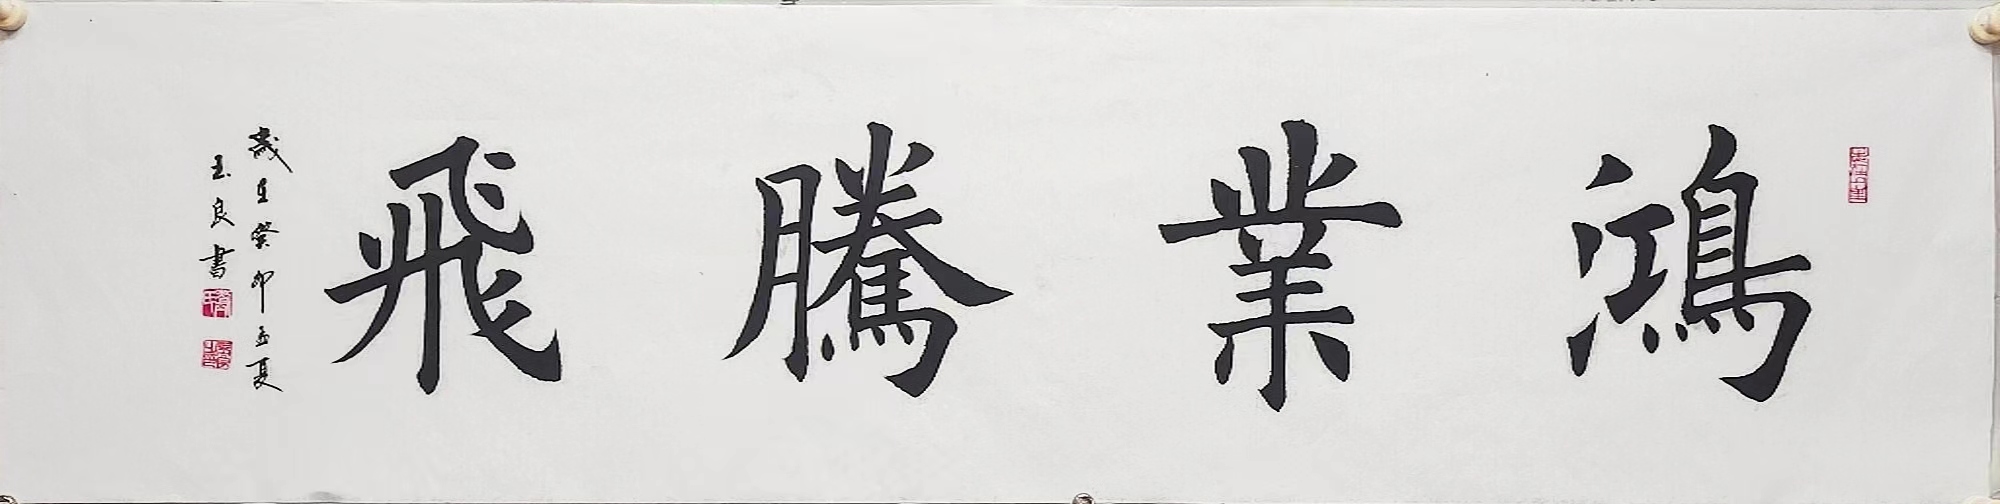 鴻業騰飛
歲在癸卯孟夏
玉良書